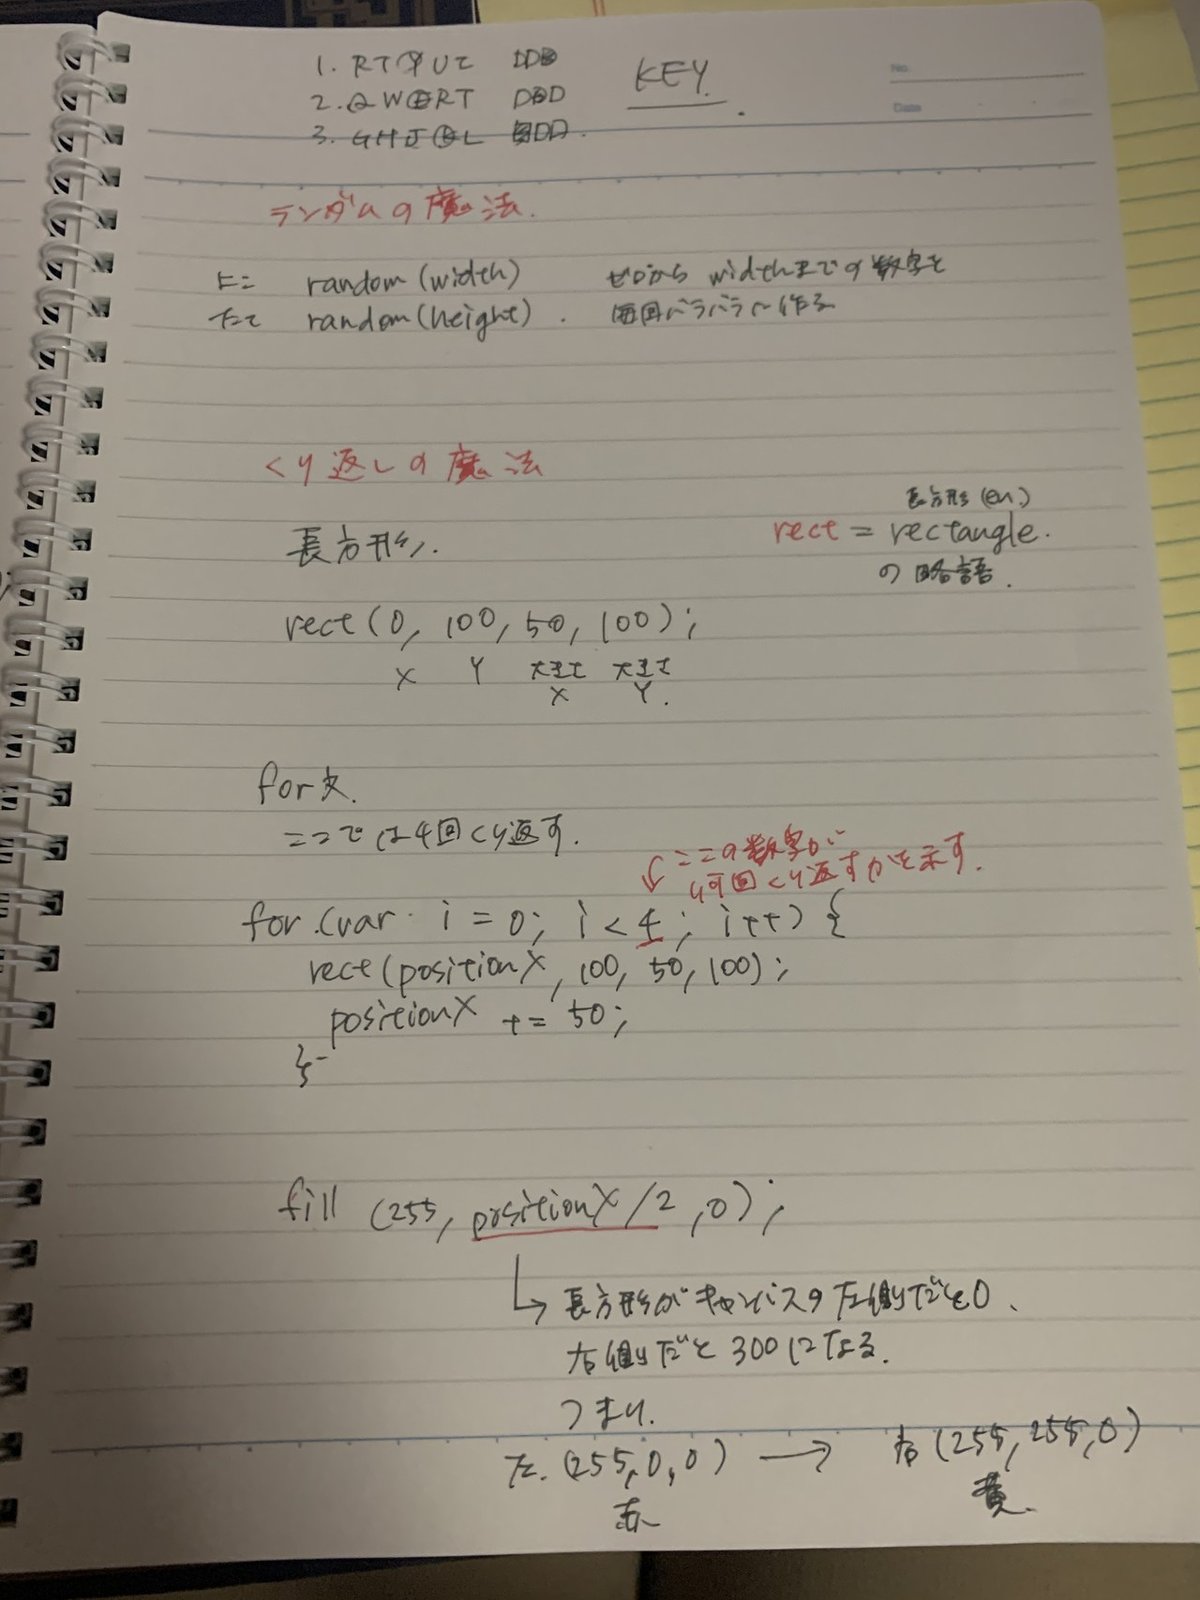 KEY.
No.
Date
ランダムの魔法.
random (width) ゼロから widthまでの数字を
random (height). 毎回バラバラに作る
くり返しの魔法
長方形.
長方形 (en.)
rect = rectangle.
の略語.
rect (0, 100, 50, 100);
X Y 大きさ 大きさ
X Y.
for文.
ここでは4回くり返す.
ここの数字が
何回くり返すかを示す.
for (var i = 0; i < 4; i++) {
rect (positionX, 100, 50, 100);
positionX += 50;
}
fill (255, positionX/2, 0);
長方形がキャンバスの左側だと0、
右側だと300になる.
つまり.
左. (255, 0, 0) → 右 (255, 255, 0)
赤 黄.